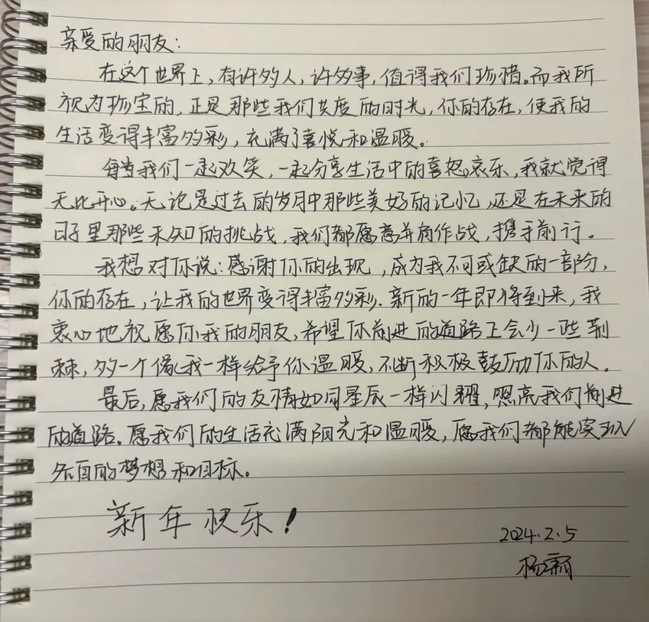 亲爱的朋友：
在这个世界上，有许多人，许多事，值得我们珍惜。而我所
视为珍宝的，正是那些我们共度的时光，你的存在，使我的
生活变得丰富多彩，充满了喜悦和温暖。
每当我们一起欢笑，一起分享生活中的喜怒哀乐，我就觉得
无比开心。无论是过去的岁月中那些美好的记忆，还是在未来的
日子里那些未知的挑战，我们都愿意并肩作战，携手前行。
我想对你说：感谢你的出现，成为我不可或缺的一部分，
你的存在，让我的世界变得丰富多彩．新的一年即将到来，我
衷心地祝愿你我的朋友，希望你前进的道路上会少一些荆
棘，多一个像我一样给予你温暖，不断积极鼓励你的人。
最后，愿我们的友情如同星辰一样闪耀，照亮我们前进
的道路。愿我们的生活充满阳光和温暖，愿我们都能实现
各自的梦想和目标。
新年快乐！
2024.2.5
杨